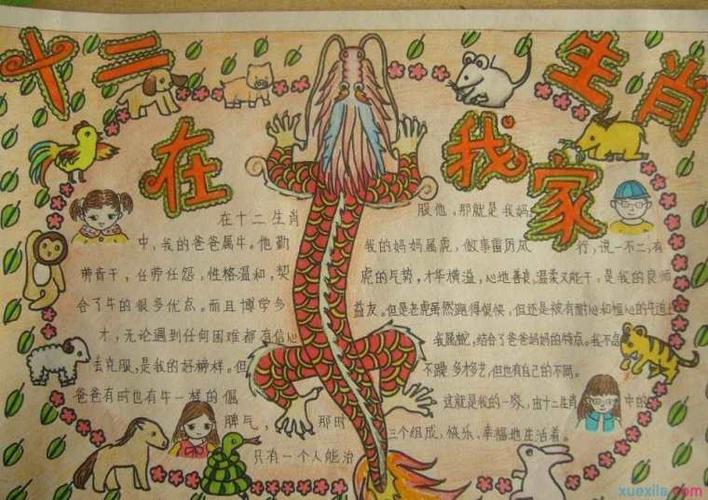 十二生肖
在我家
在十二生肖
中,我的爸爸属牛。他勤
劳肯干,任劳任怨,性格温和,契
合了牛的很多优点。而且博学多
才,无论遇到任何困难都有信心
去克服,是我的好榜样。但
爸爸有时也有牛一样的倔
脾气,那时
只有一个人能治
服他,那就是我妈
我的妈妈属虎,做事雷厉风行,说一不二,有
虎的气势,才华横溢,心地善良,温柔又能干,是我的良师
益友。但是老虎虽然跑得很快,但还是被有耐心和恒心的牛追上
我属蛇,结合了爸爸妈妈的特点。我不急
不躁 多才多艺,但也有自己的不同。
这就是我的一家,由十二生肖中的
三个组成,快乐、幸福地生活着。
xuexila.com